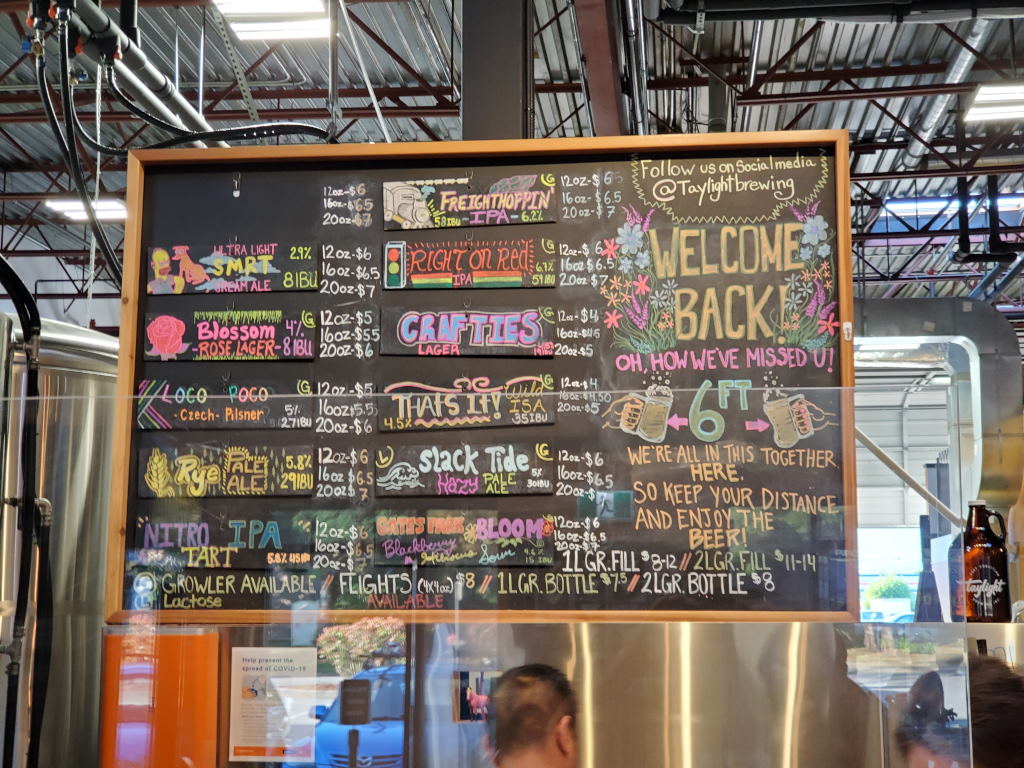 Follow us on Social media
@Taylightbrewing
WELCOME
BACK!
OH, HOW WE'VE MISSED U!
6FT
WE'RE ALL IN THIS TOGETHER
HERE.
SO KEEP YOUR DISTANCE
AND ENJOY THE
BEER!
12oz-$6
16oz-$6.5
20oz-$7
ULTRA LIGHT 2.9%
SMRT
CREAM ALE 8IBU
12oz-$6
16oz-$6.5
20oz-$7
Blossom 4% G
ROSE LAGER- 8IBU
12oz-$5
16oz-$5.5
20oz-$6
LOCO POCO G
-Czech- Pilsner 5% 27IBU
12oz-$5
16oz-$5.5
20oz-$6
Rye ALE! ALE! 5.8% G
29IBU
12oz-$6
16oz-$6.5
20oz-$7
NITRO IPA
TART 5.8% 45IBU
12oz-$6
16oz-$6.5
20oz-$7
FREIGHTHOPPIN' G
58IBU IPA-6.2%
12oz-$6
16oz-$6.5
20oz-$7
RIGHT ON RED G
IPA 6.7% 59IBU
12oz-$6
16oz-$6.5
20oz-$7
CRAFTIES G
LAGER
12oz-$4
20oz-$5
THAT'S IT! Wild G
4.5% ISA 35IBU
12oz-$4
16oz-$4.50
20oz-$5
Slack Tide G
Hazy PALE ALE 5% 30IBU
12oz-$6
16oz-$6.5
20oz-$7
GATES PARK BLOOM
Blackberry Hibiscus Sour 4.6% 15 IBU
12oz-$6
16oz-$6.5
20oz-$7
1L GR.FILL $8-12 // 2L GR.FILL $11-14
G GROWLER AVAILABLE // FLIGHTS (4x4oz) $8 // 1L GR.BOTTLE $7.5 // 2L GR.BOTTLE $8
Lactose AVAILABLE
Help prevent the
spread of COVID-19
Taylight